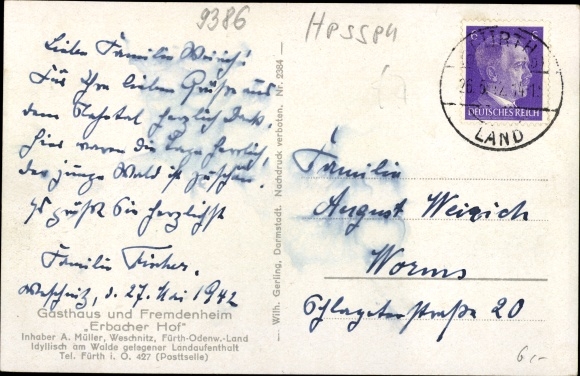 9386
HPSSP4
Liebe Familie Weirich!
Für Ihre lieben Grüße aus
dem herzlich Dank,
hier waren die Tage herrlich,
der junge Wald ist zu schön!
Es grüßt Sie herzlichst
Familie Fischer.
Weschnitz, d. 27. Mai 1942
Gasthaus und Fremdenheim
„Erbacher Hof"
Inhaber A. Müller, Weschnitz, Fürth-Odenw.-Land
Idyllisch am Walde gelegener Landaufenthalt
Tel. Fürth i. O. 427 (Posttselle)
Wilh. Gerling, Darmstadt. Nachdruck verboten. Nr. 2384
FÜRTH
LAND
DEUTSCHES REICH
Familie
August Weirich
Worms
Schlageterstraße 20
6,-